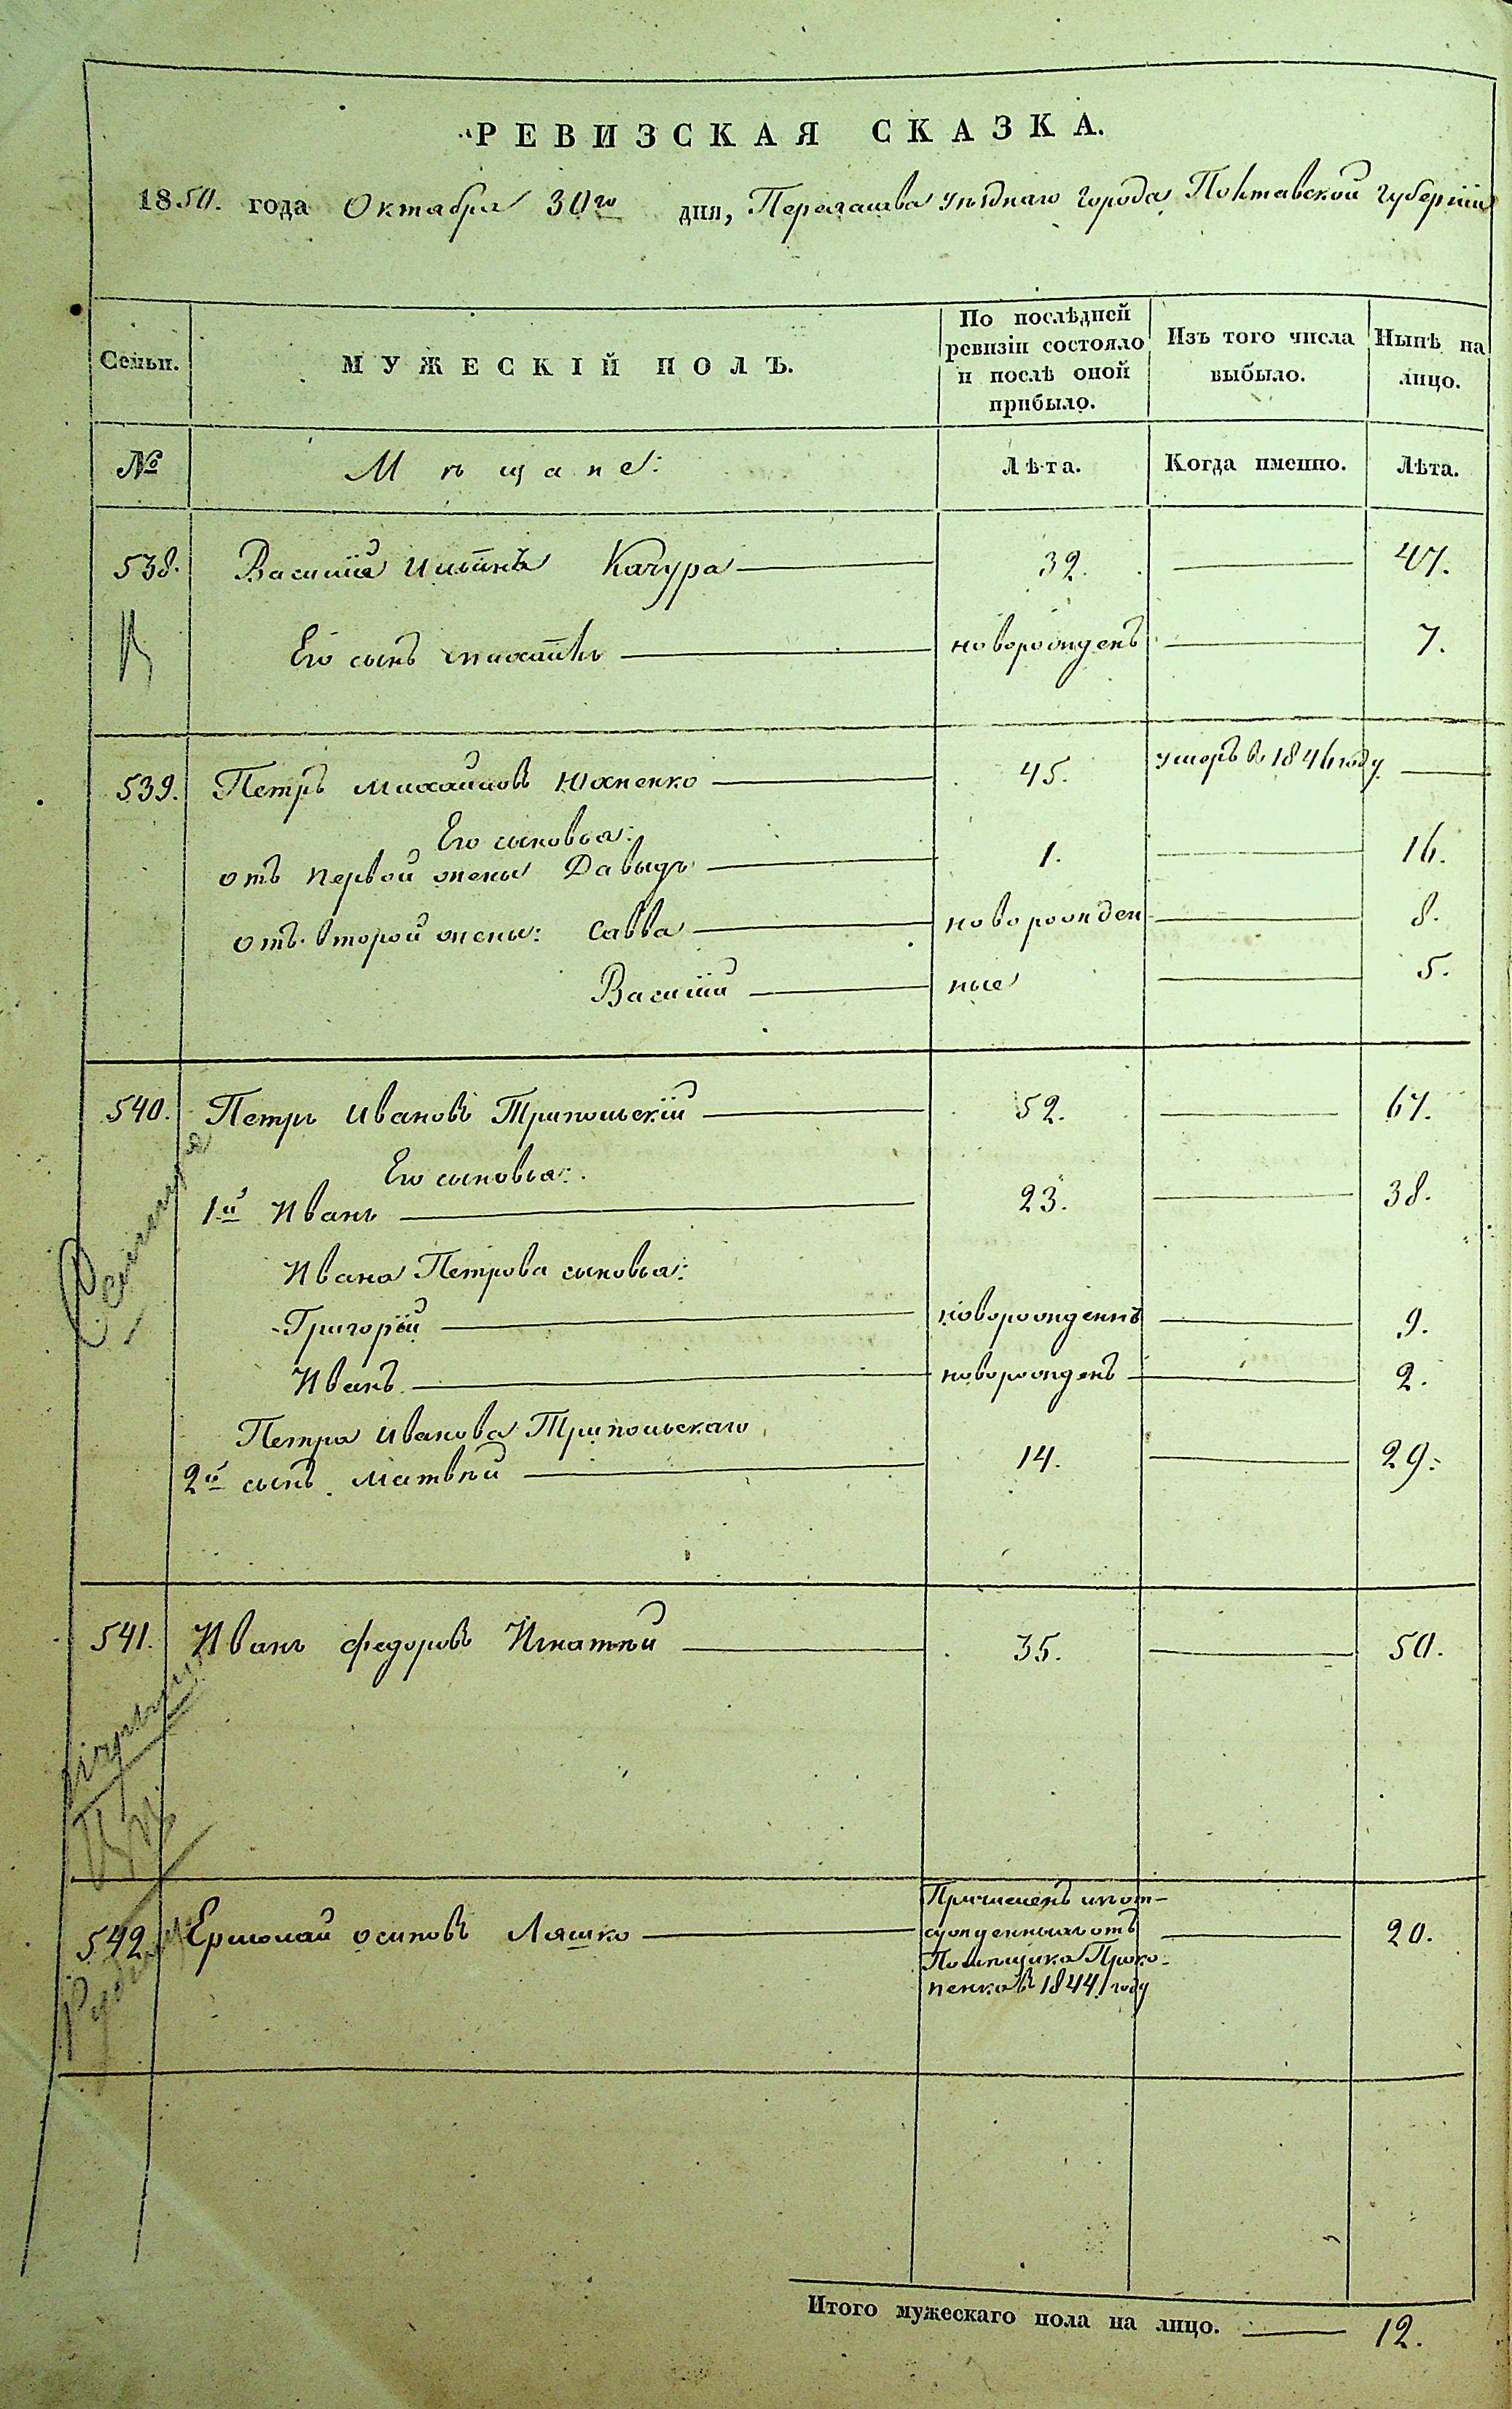 РЕВИЗСКАЯ СКАЗКА.
1850. года Октабря 30го дня, Переяслава уѣзднаго города Полтавской губерніи
Семьи. МУЖЕСКІЙ ПОЛЪ. По послѣдней ревизіи состояло и послѣ оной прибыло. Изъ того числа выбыло. Нынѣ на лицо.
№ Мѣщане: Лѣта. Когда именно. Лѣта.
538. Василій Ильинъ Качура 32. 47.
Его сынъ новорожденъ 7.
539. Петръ Михайловъ Юхненко 45. умеръ в 1846 году
Его сыновья:
отъ первой жены Давыдъ 1. 16.
отъ второй жены: Савва новорожден 8.
Василій ные 5.
540. Петръ Ивановъ Трипольскій 52. 67.
Его сыновья:
1й Иванъ 23. 38.
Ивана Петрова сыновья:
Григорій новорожденнъ 9.
Иванъ новорожденъ 2.
Петра Иванова Трипольскаго
2й сынъ Матвѣй 14. 29.
541. Иванъ Федоровъ Игнатѣй 35. 50.
542. Ермолай Осиповъ Ляшко Причисленъ изъ от-
сужденныхъ отъ
Помѣщика Проко-
пенка въ 1844 году
20.
Итого мужескаго пола на лицо. 12.